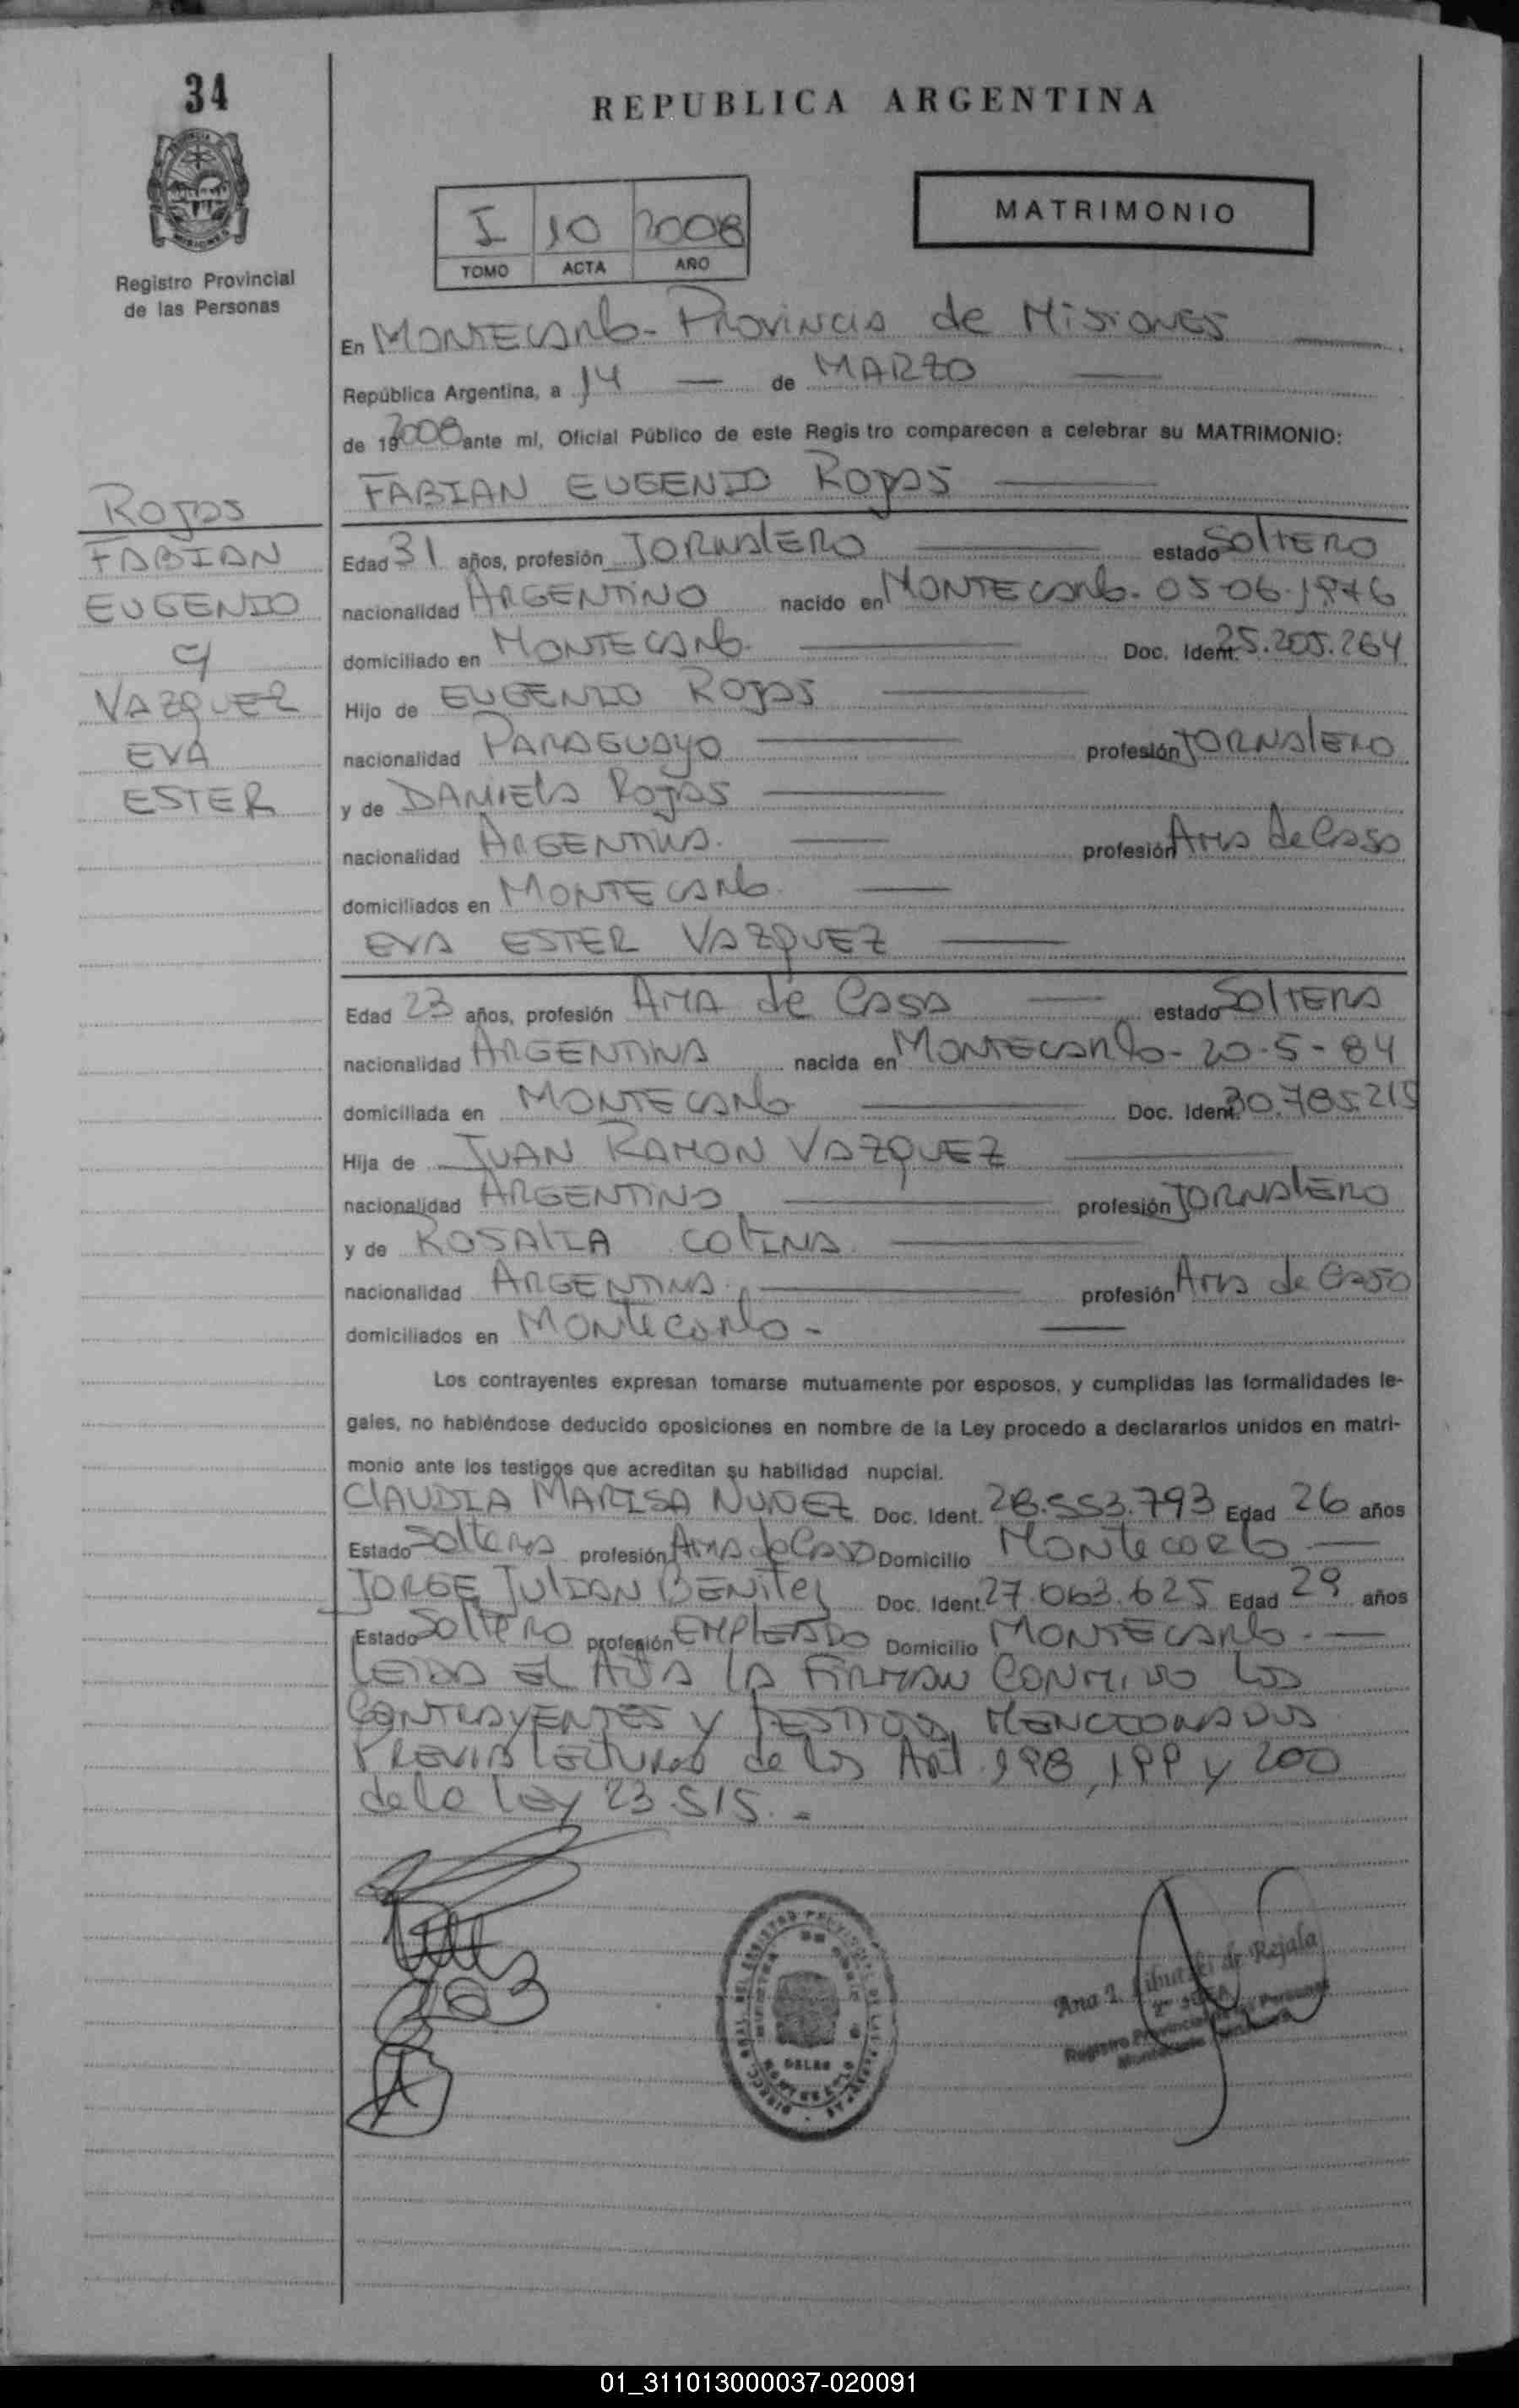 34
REPUBLICA ARGENTINA
MATRIMONIO
I 10 2008
TOMO ACTA AÑO
Registro Provincial
de las Personas
En MONTECARLO - PROVINCIA de MISIONES
República Argentina, a 14 de MARZO
de 192008 ante mí, Oficial Público de este Regis tro comparecen a celebrar su MATRIMONIO:
FABIAN EUGENIO ROJAS
ROJAS
FABIAN
EUGENIO
c/
VAZQUEZ
EVA
ESTER
Edad 31 años, profesión JORNALERO estado SOLTERO
nacionalidad ARGENTINO nacido en MONTECARLO - 05-06-1976
domiciliado en MONTECARLO Doc. Ident. 25.205.264
Hijo de EUGENIO ROJAS
nacionalidad PARAGUAYO profesión JORNALERO
y de DANIELA ROJAS
nacionalidad ARGENTINA. profesión AMA de CASA
domiciliados en MONTECARLO
EVA ESTER VAZQUEZ
Edad 23 años, profesión AMA de CASA estado SOLTERA
nacionalidad ARGENTINA nacida en MONTECARLO - 20-5-84
domiciliada en MONTECARLO Doc. Ident. 30.785.215
Hija de JUAN RAMON VAZQUEZ
nacionalidad ARGENTINO profesión JORNALERO
y de ROSALIA COLINA
nacionalidad ARGENTINA. profesión AMA de CASA
domiciliados en MONTECARLO -
Los contrayentes expresan tomarse mutuamente por esposos, y cumplidas las formalidades le-
gales, no habiéndose deducido oposiciones en nombre de la Ley procedo a declararlos unidos en matri-
monio ante los testigos que acreditan su habilidad nupcial.
CLAUDIA MARISA NUÑEZ Doc. Ident. 28.553.793 Edad 26 años
Estado SOLTERA profesión AMA de CASA Domicilio MONTECARLO
JORGE JULIAN BENITEZ Doc. Ident. 27.063.625 Edad 29 años
Estado SOLTERO profesión EMPLEADO Domicilio MONTECARLO
LEIDA EL ACTA LA FIRMAN CONMIGO LOS
CONTRAYENTES y TESTIGOS MENCIONADOS
PREVIA LECTURA de los Art. 198, 199 y 200
de la Ley 23.515. -
de Rejala
Registro Provincial de las Personas
01_311013000037-020091